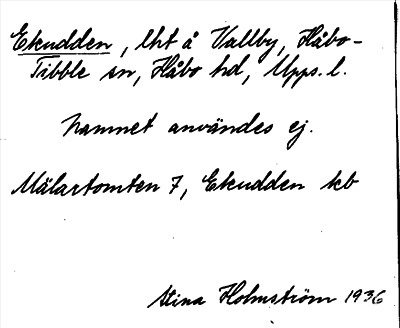 Ekudden, lht å Vallby, Håbo-
Tibble sn, Håbo hd, Upps. l.
Namnet användes ej.
Mälartomten 7, Ekudden kb
Stina Holmström 1936